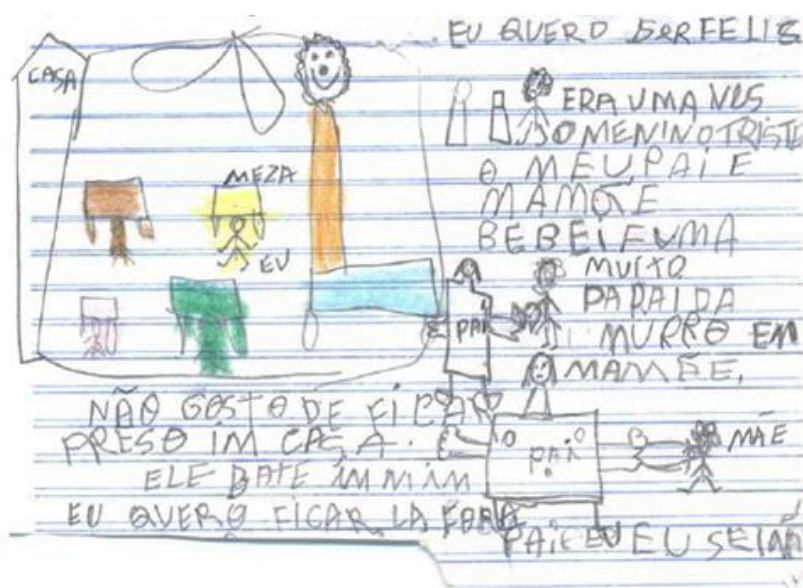 EU QUERO SER FELIS
CASA
ERA UMA VES
O MENINO TRISTE
O MEU PAI E
MAMÃE
BEBE I FUMA
MUITO
PARAI DA
MURRO EM
MAMÃE,
MEZA
EU
PAI
NÃO GOSTO DE FICAR
PRESO IM CASA.
ELE BATE IM MIM
EU QUERO FICAR LA FORA
PAI
MÃE
EU SEI